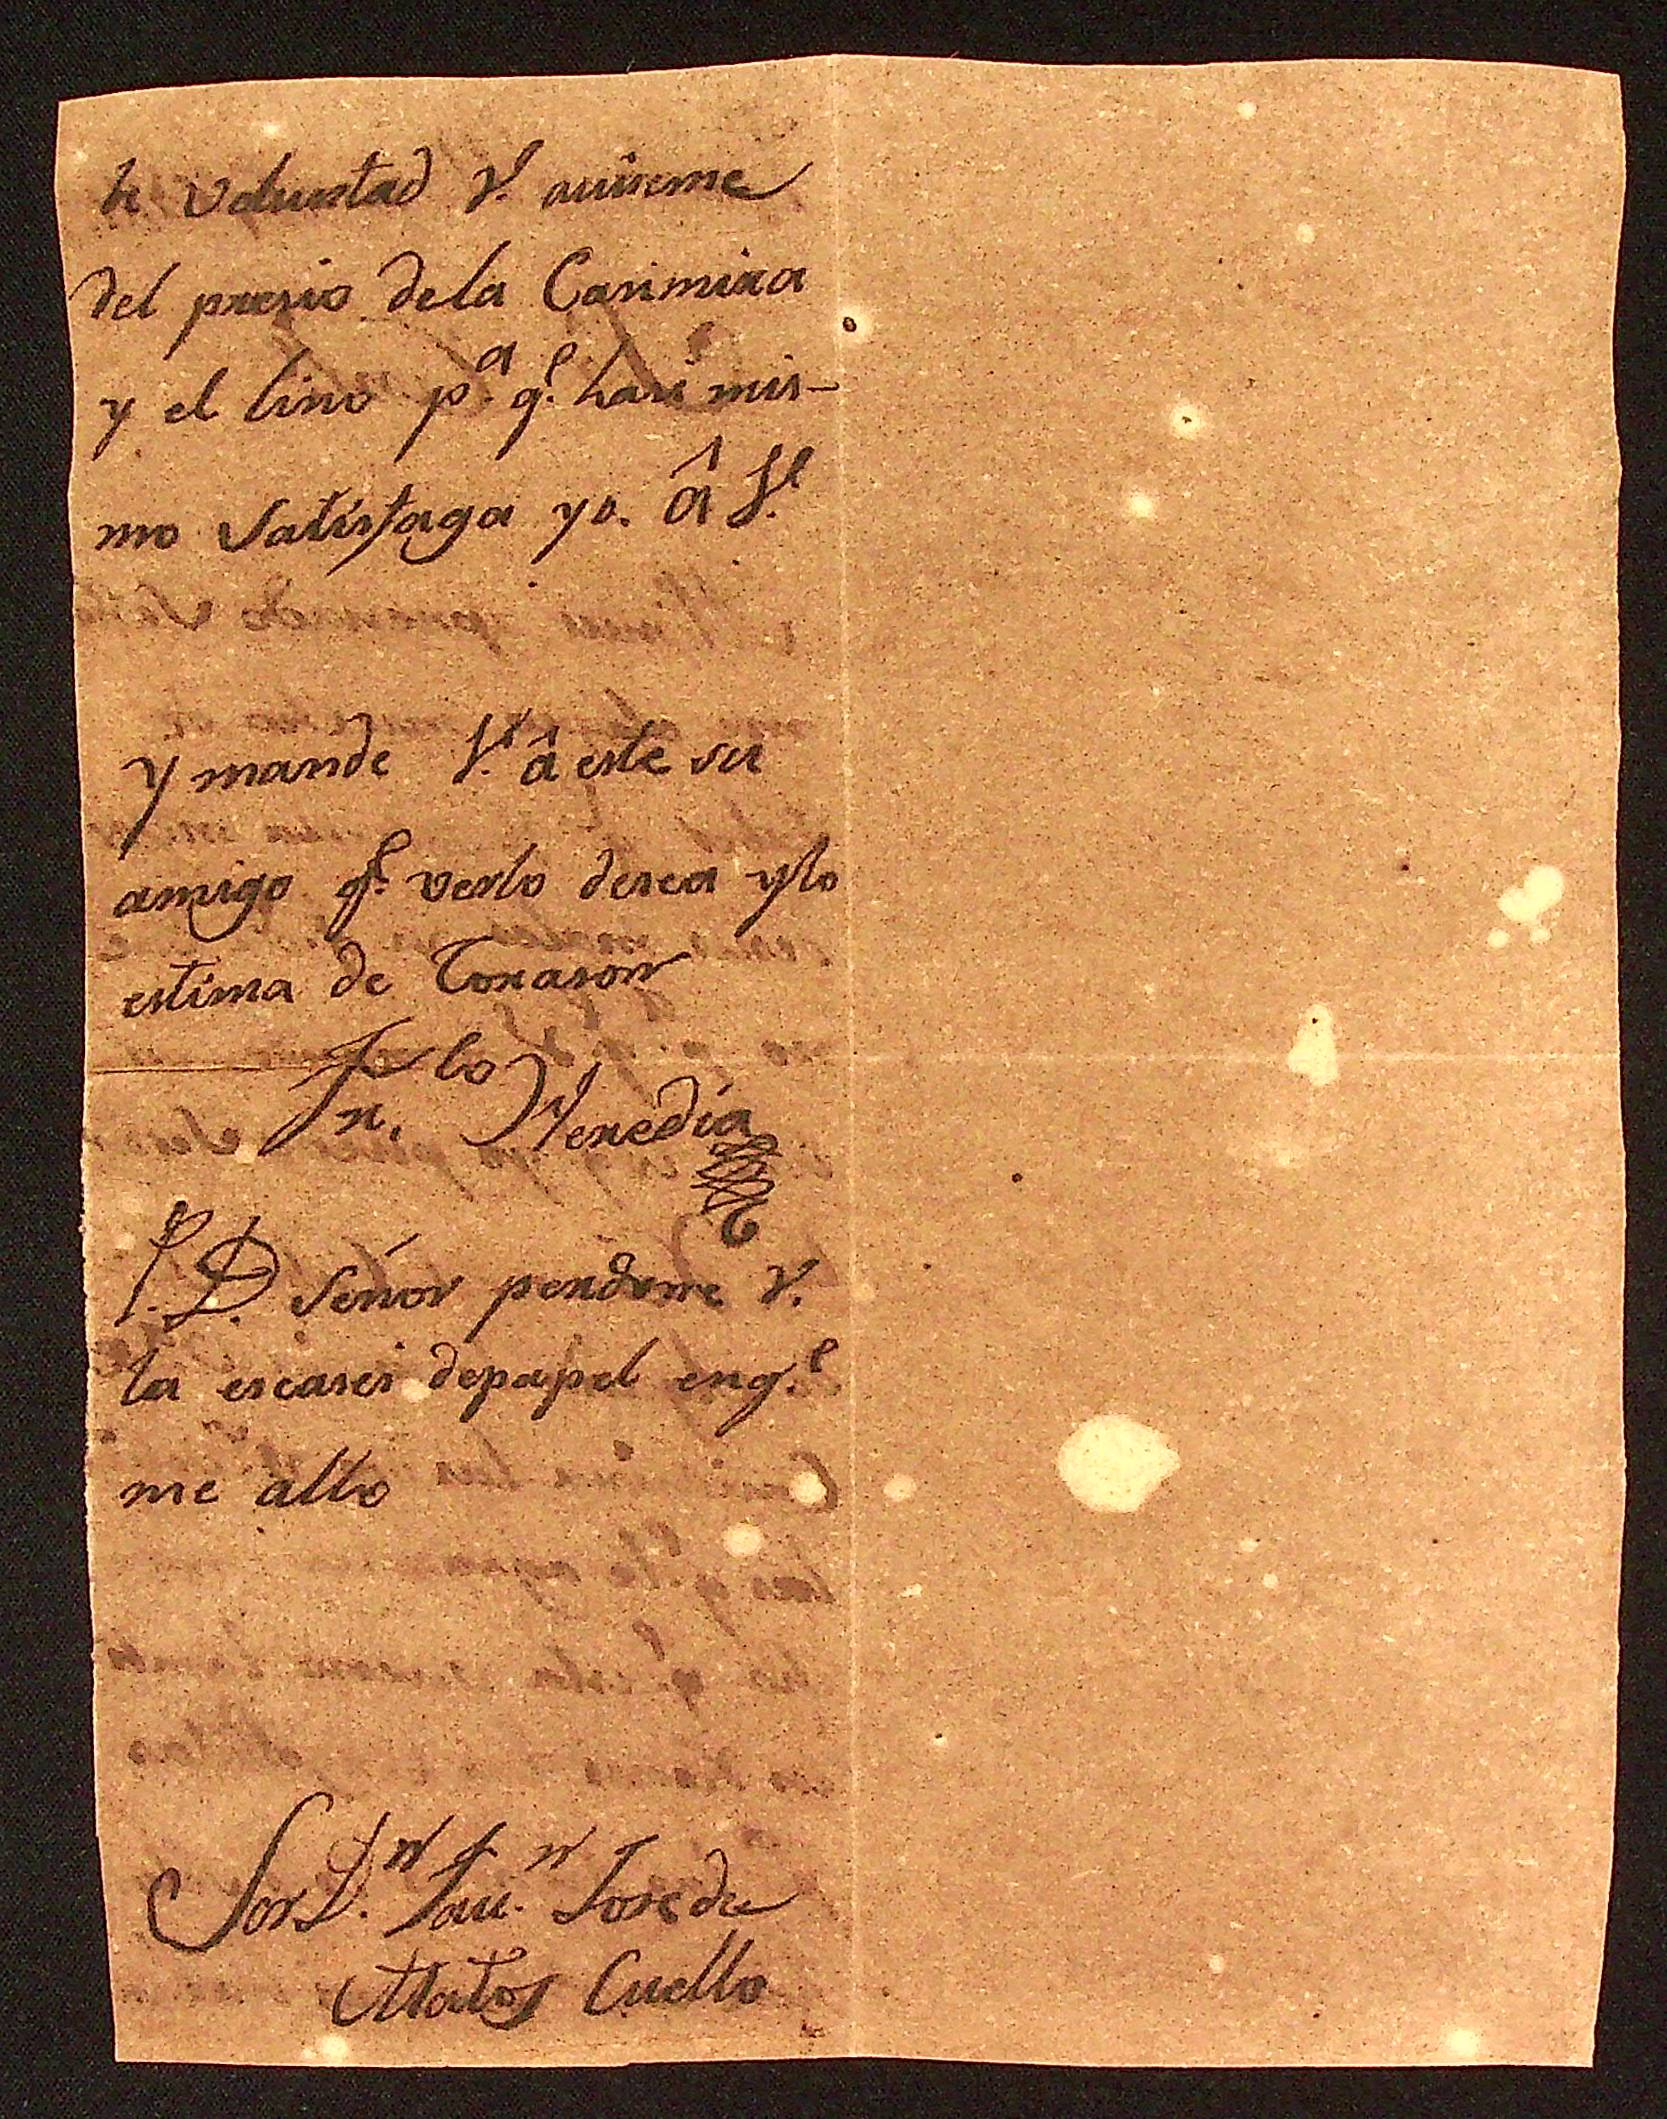 voluntad V.^d aviseme
del presio dela Casimira
y el lino p.^a q.^e hasi mis-
mo Satisfaga yo. â V.^d
y mande V.^d â este su
amigo q.^e verlo desea ylo
estima de Corason
Heredia
P.D. Señor perdone V.
la escases depapel enq.^e
me allo
Sor D.^n Jose de
Matos Cuello